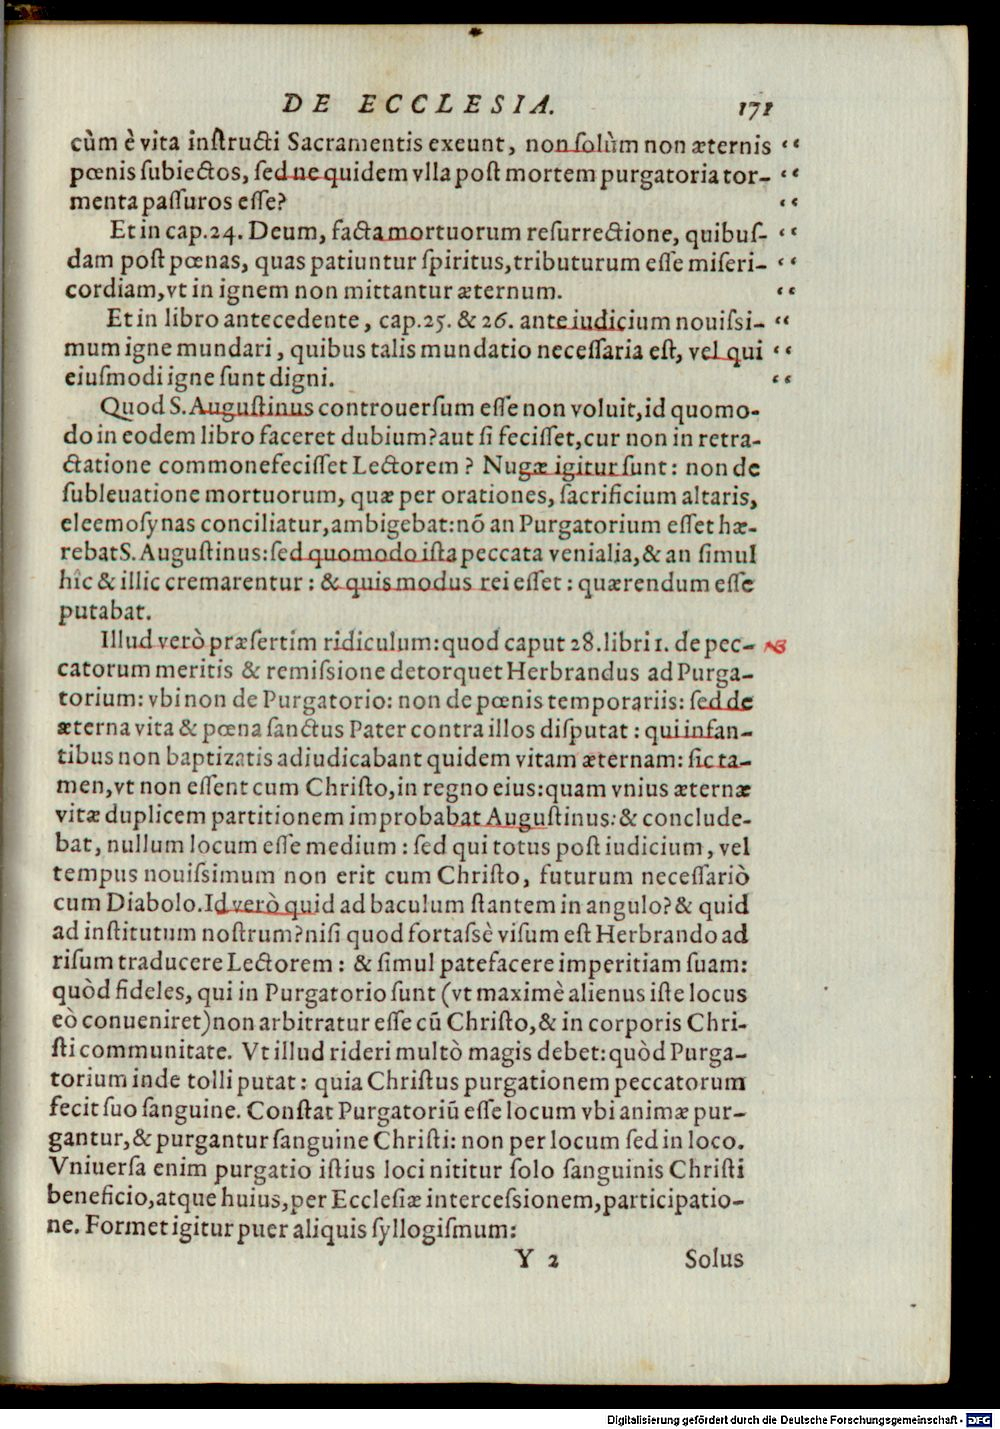 DE ECCLESIA. 171
cùm è vita inſtructi Sacramentis exeunt, non ſolùm non æternis “
pœnis ſubiectos, ſed ne quidem vlla poſt mortem purgatoria tor- “
menta paſſuros eſſe? “
Et in cap. 24. Deum, facta mortuorum reſurrectione, quibuſ- “
dam poſt pœnas, quas patiuntur ſpiritus, tributurum eſſe miſeri- “
cordiam, vt in ignem non mittantur æternum. “
Et in libro antecedente, cap. 25. & 26. ante iudicium nouiſsi- “
mum igne mundari, quibus talis mundatio neceſſaria eſt, vel qui “
eiuſmodi igne ſunt digni. “
Quod S. Auguſtinus controuerſum eſſe non voluit, id quomo-
do in eodem libro faceret dubium? aut ſi feciſſet, cur non in retra-
ctatione commonefeciſſet Lectorem? Nugæ igitur ſunt: non de
ſubleuatione mortuorum, quæ per orationes, ſacrificium altaris,
eleemoſynas conciliatur, ambigebat: nō an Purgatorium eſſet hæ-
rebat S. Auguſtinus: ſed quomodo iſta peccata venialia, & an ſimul
hîc & illic cremarentur: & quis modus rei eſſet: quærendum eſſe
putabat.
Illud verò præſertim ridiculum: quod caput 28. libri 1. de pec- NB
catorum meritis & remiſsione detorquet Herbrandus ad Purga-
torium: vbi non de Purgatorio: non de pœnis temporariis: ſed de
æterna vita & pœna ſanctus Pater contra illos diſputat: qui infan-
tibus non baptizatis adiudicabant quidem vitam æternam: ſic ta-
men, vt non eſſent cum Chriſto, in regno eius: quam vnius æternæ
vitæ duplicem partitionem improbabat Auguſtinus: & conclude-
bat, nullum locum eſſe medium: ſed qui totus poſt iudicium, vel
tempus nouiſsimum non erit cum Chriſto, futurum neceſſariò
cum Diabolo. Id verò quid ad baculum ſtantem in angulo? & quid
ad inſtitutum noſtrum? niſi quod fortaſsè viſum eſt Herbrando ad
riſum traducere Lectorem: & ſimul patefacere imperitiam ſuam:
quòd fideles, qui in Purgatorio ſunt (vt maximè alienus iſte locus
eò conueniret) non arbitratur eſſe cū Chriſto, & in corporis Chri-
ſti communitate. Vt illud rideri multò magis debet: quòd Purga-
torium inde tolli putat: quia Chriſtus purgationem peccatorum
fecit ſuo ſanguine. Conſtat Purgatoriū eſſe locum vbi animæ pur-
gantur, & purgantur ſanguine Chriſti: non per locum ſed in loco.
Vniuerſa enim purgatio iſtius loci nititur ſolo ſanguinis Chriſti
beneficio, atque huius, per Eccleſiæ interceſsionem, participatio-
ne. Formet igitur puer aliquis ſyllogiſmum:
Y 2 Solus
Digitalisierung gefördert durch die Deutsche Forschungsgemeinschaft - DFG